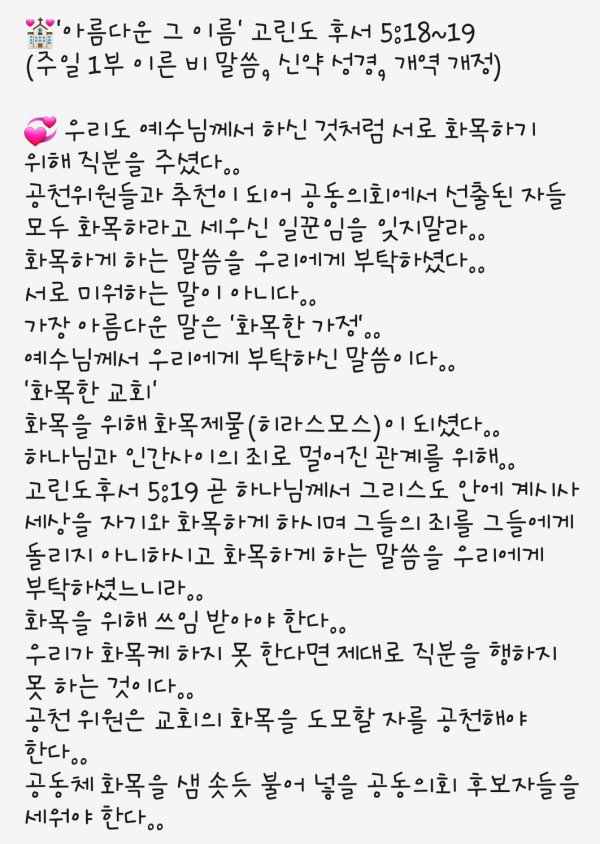 💒'아름다운 그 이름' 고린도 후서 5:18~19
(주일 1부 이른 비 말씀, 신약 성경, 개역 개정)
💞 우리도 예수님께서 하신 것처럼 서로 화목하기
위해 직분을 주셨다..
공천위원들과 추천이 되어 공동의회에서 선출된 자들
모두 화목하라고 세우신 일꾼임을 잊지말라..
화목하게 하는 말씀을 우리에게 부탁하셨다..
서로 미워하는 말이 아니다..
가장 아름다운 말은 '화목한 가정'..
예수님께서 우리에게 부탁하신 말씀이다..
'화목한 교회'
화목을 위해 화목제물(히라스모스)이 되셨다..
하나님과 인간사이의 죄로 멀어진 관계를 위해..
고린도후서 5:19 곧 하나님께서 그리스도 안에 계시사
세상을 자기와 화목하게 하시며 그들의 죄를 그들에게
돌리지 아니하시고 화목하게 하는 말씀을 우리에게
부탁하셨느니라..
화목을 위해 쓰임 받아야 한다..
우리가 화목케 하지 못 한다면 제대로 직분을 행하지
못 하는 것이다..
공천 위원은 교회의 화목을 도모할 자를 공천해야
한다..
공동체 화목을 샘 솟듯 불어 넣을 공동의회 후보자들을
세워야 한다..